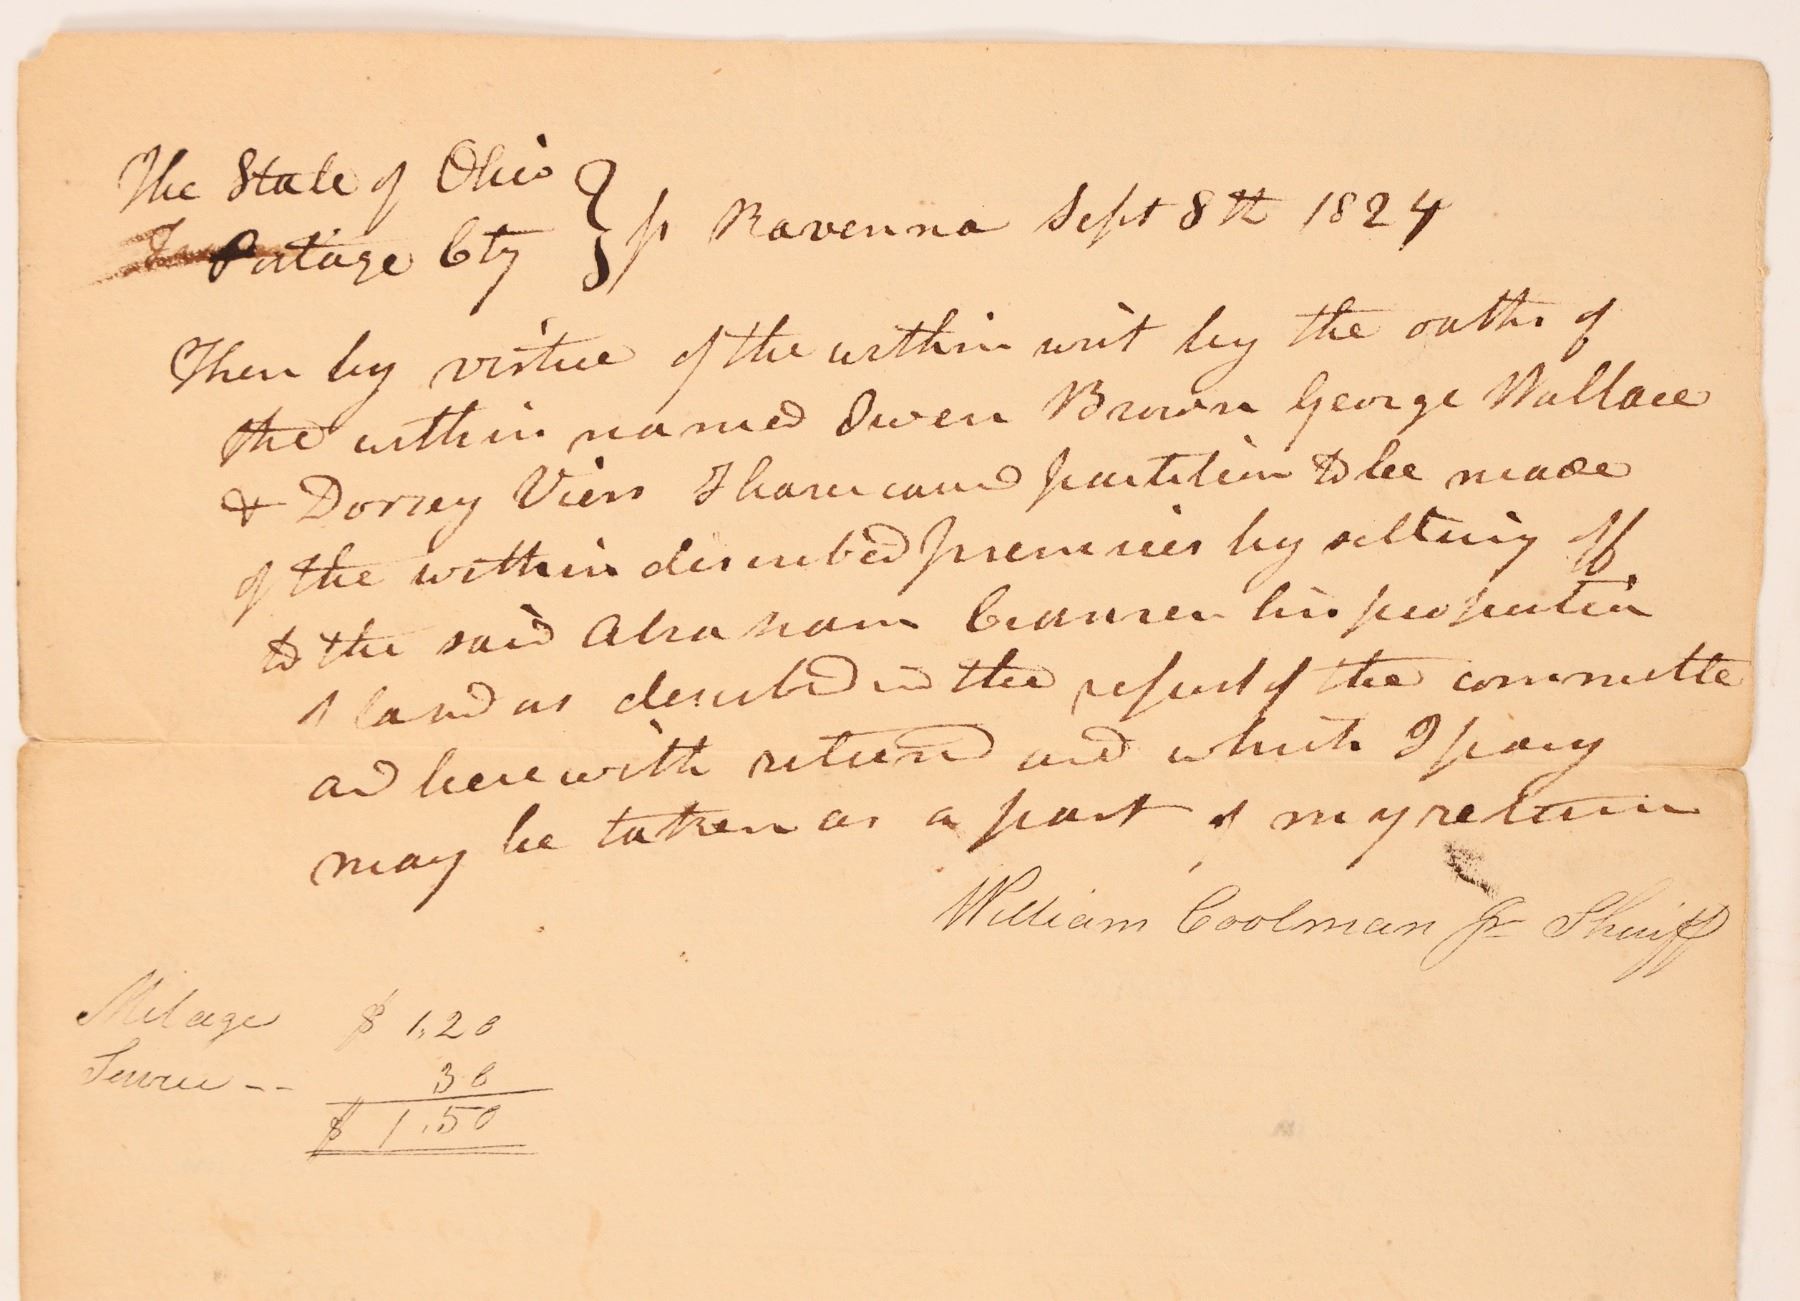 The State of Ohio
Portage Cty } ss Ravenna Sept 8th 1824
Then by virtue of the within writ by the oaths of
the within named Owen Brown George Wallace
& Dorsey Viers I have caused partition to be made
of the within described premises by setting off
to the said Abraham his proportion
of land as described in the report of the committe
and herewith returned and which I pray
may be taken as a part of my return
William Coolman Jr Sheriff
Milage $ 1.20
Service -- 30
$ 1.50